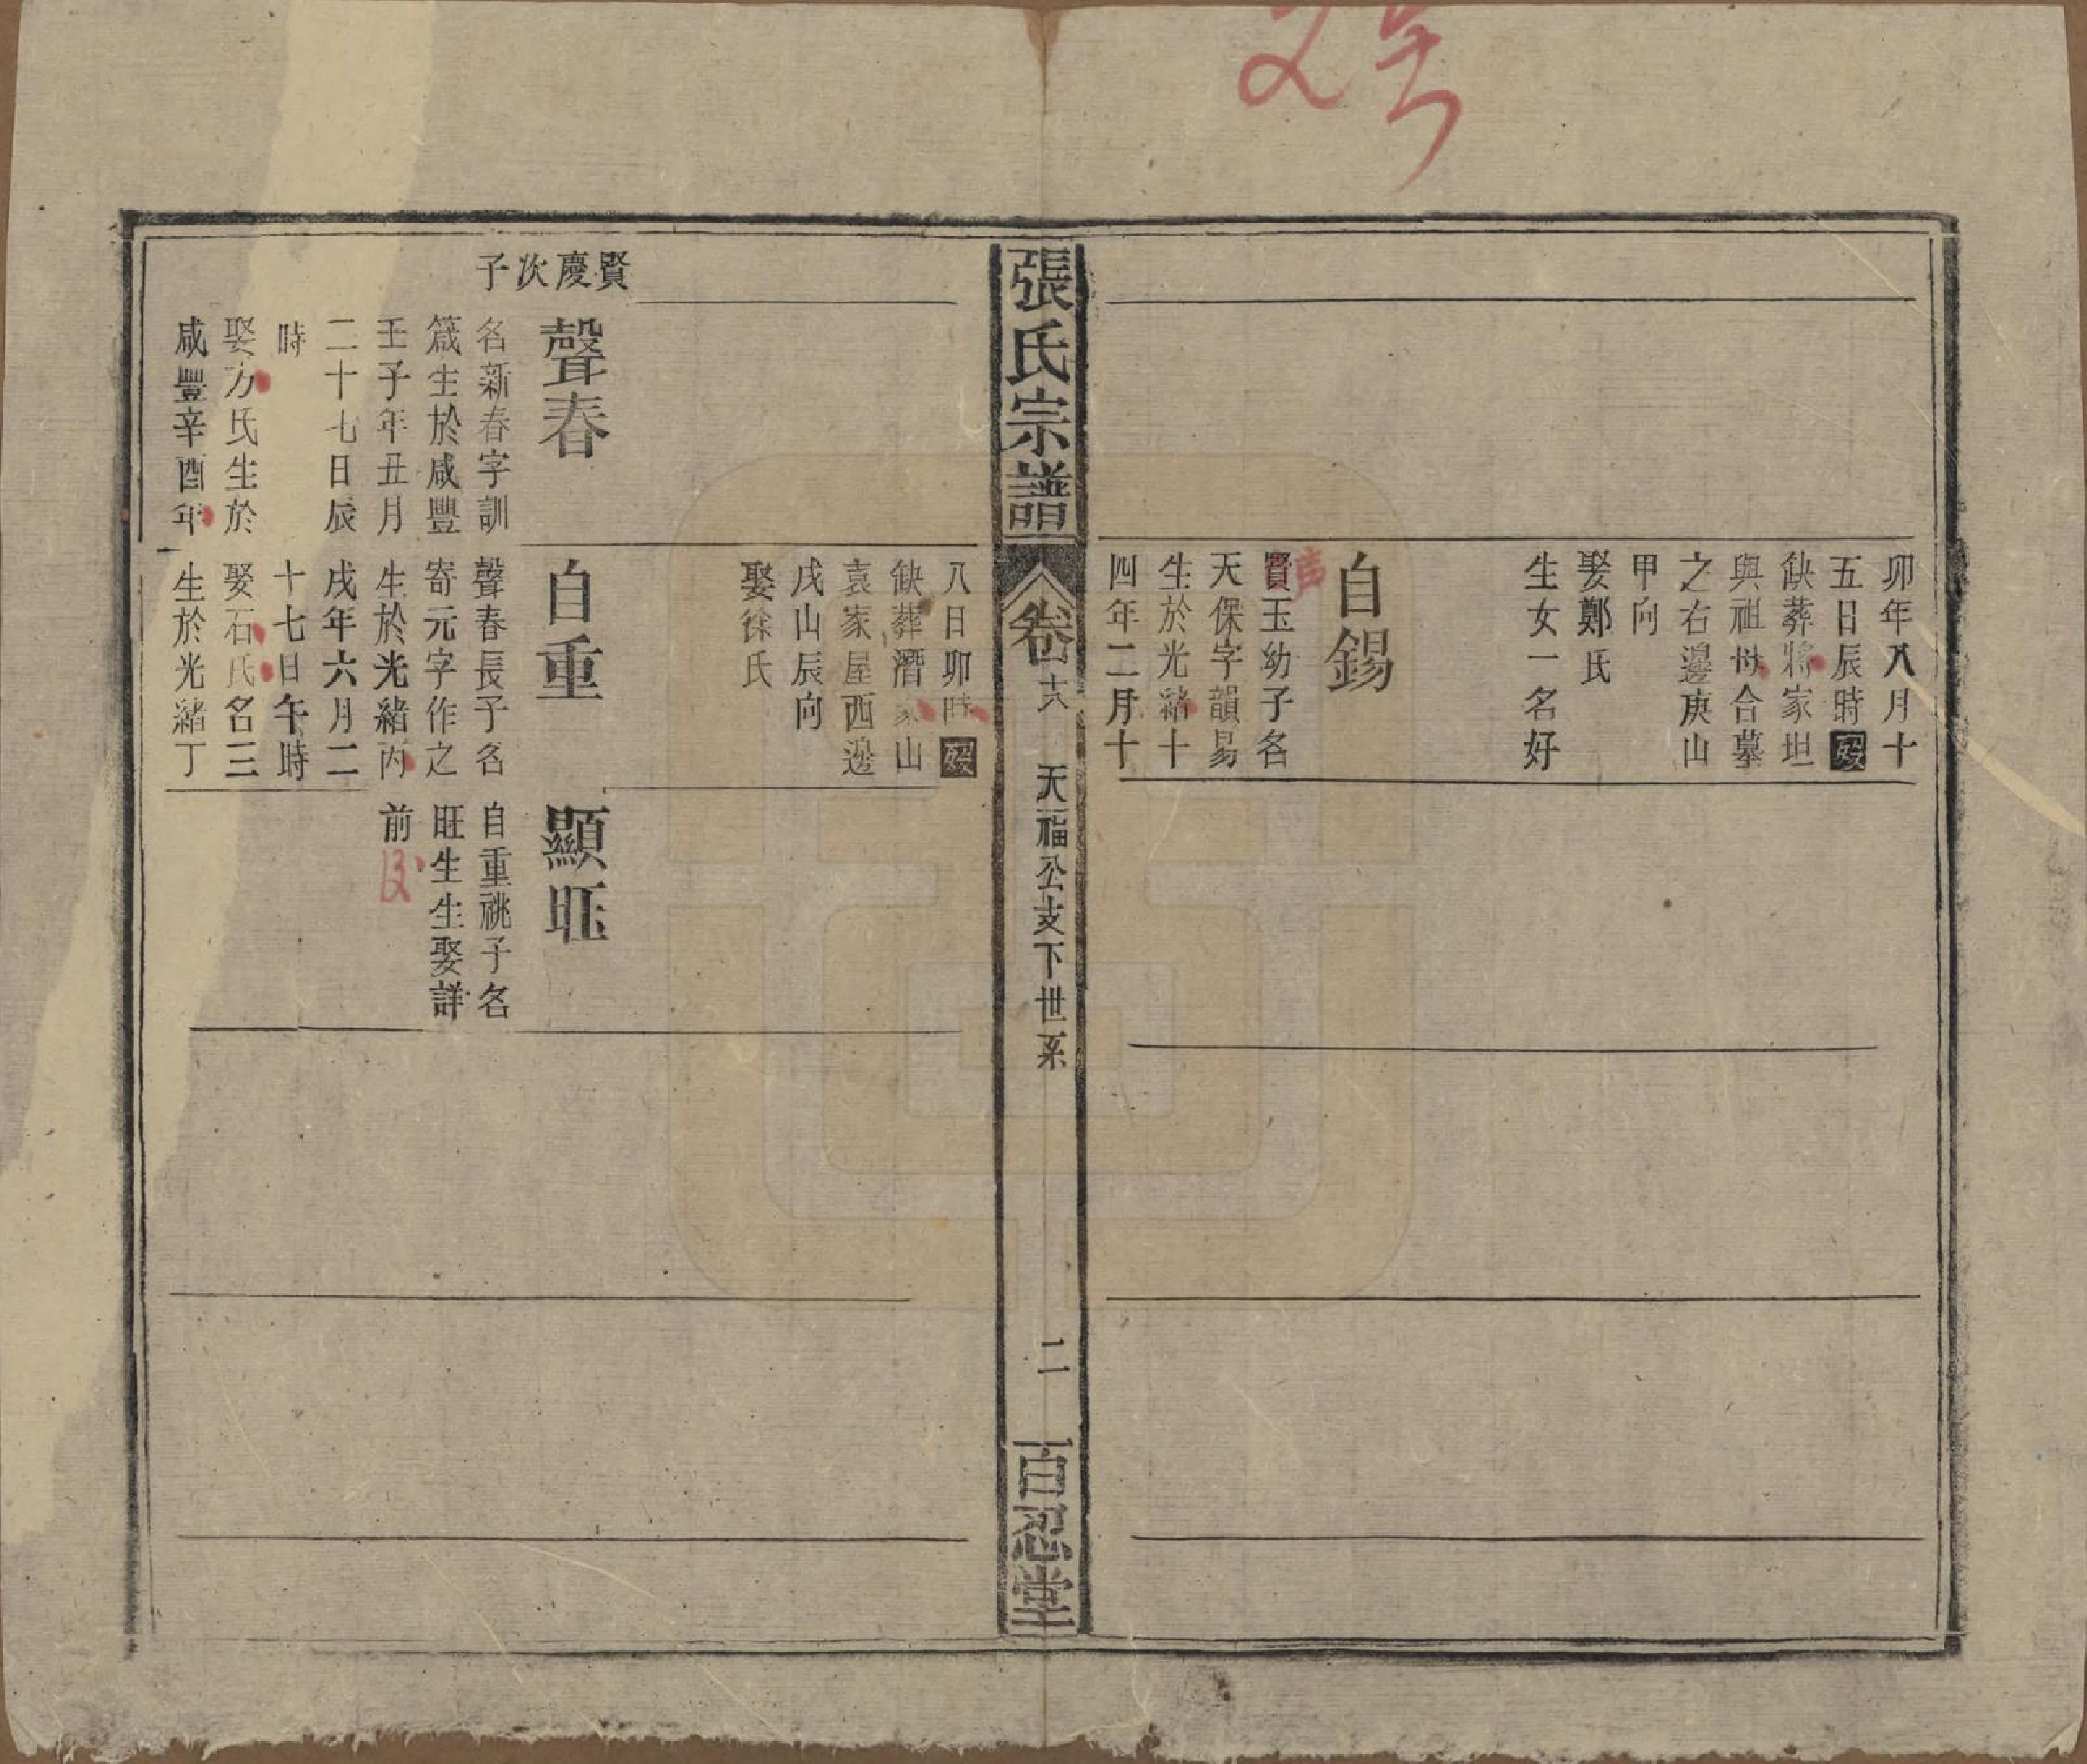 卯年八月十
五日辰時歿
缺葬蔣家坦
與祖母合墓
之右邊庚山
甲向
娶鄭氏
生女一名好
自錫
賢玉幼子名
声
天保字韻昜
生於光緒十
四年二月十
張氏宗譜
卷十六
天福公支下世系
二
百忍堂
八日卯時歿
缺葬潛家山
袁家屋西邊
戌山辰向
娶徐氏
賢慶次子
聲春
名新春字訓
箴生於咸豐
壬子年丑月
二十七日辰
時
娶方氏生於
咸豐辛酉年
自重
聲春長子名
寄元字作之
生於光緒丙
戌年六月二
十七日午時
娶石氏名三
生於光緒丁
顯旺
自重祧子名
旺生生娶詳
前